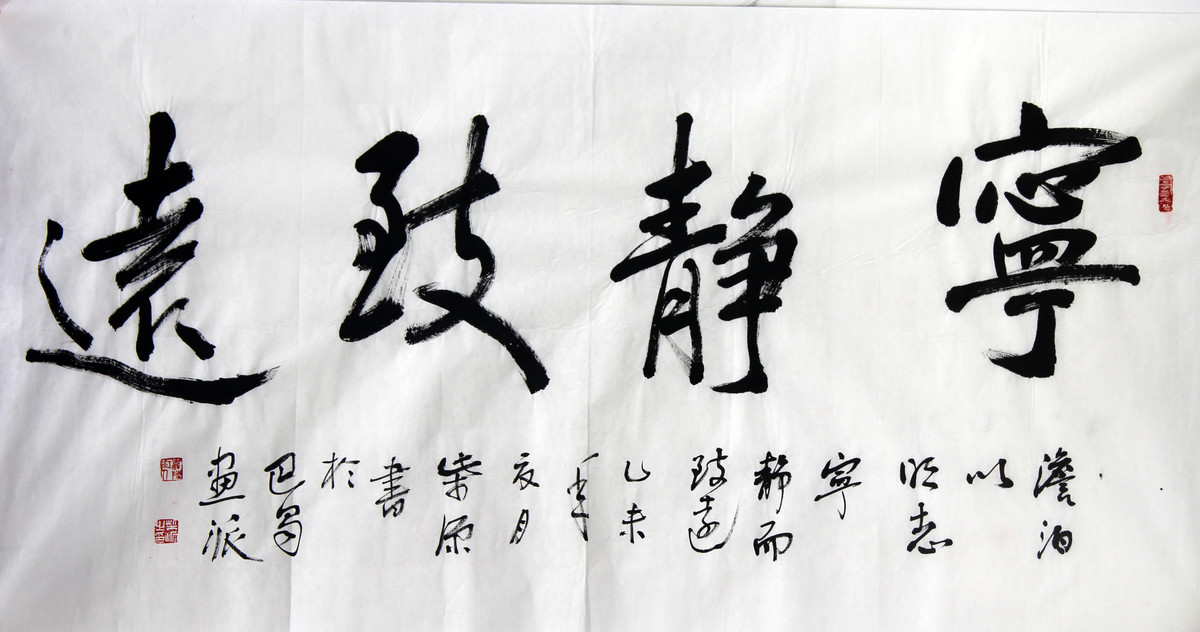 寧靜致遠
澹泊
以
明志
寧
静而
致遠
乙未
年
夏月
柴原
書
於
巴蜀
画派